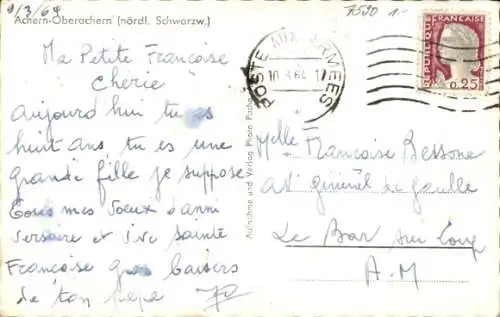 9/3/64
7590 1.-
Achern-Oberachern (nördl. Schwarzw.)
Ma Petite Françoise
Cherie
aujourd hui tu as
huit ans tu es une
grande fille je suppose
Tous mes voeux d'anni
versaire et  sainte
Françoise gros baisers
de ton papa
POSTE AUX ARMEES
10-3-64 17
REPUBLIQUE FRANÇAISE
0,25
Aufnahme und Verlag Photo
Melle Françoise Bessone
av Général de Gaulle
Le Bar sur Loup
A.M